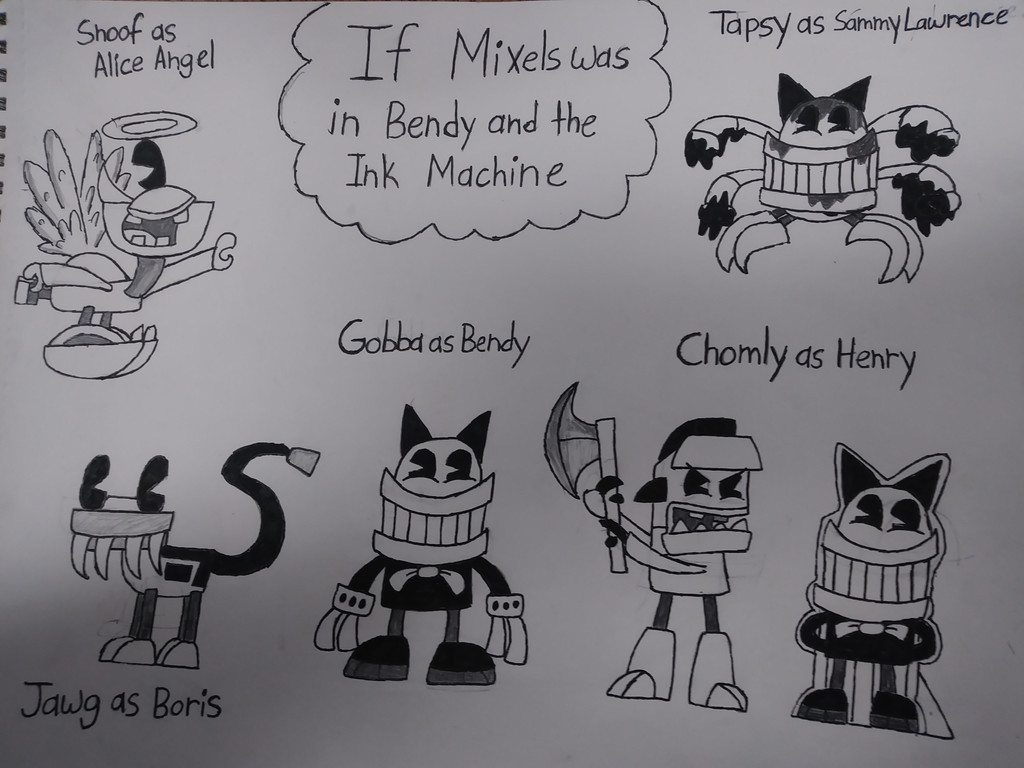 Shoof as
Alice Angel
If Mixels was
in Bendy and the
Ink Machine
Tapsy as Sammy Lawrence
Gobba as Bendy
Chomly as Henry
Jawg as Boris